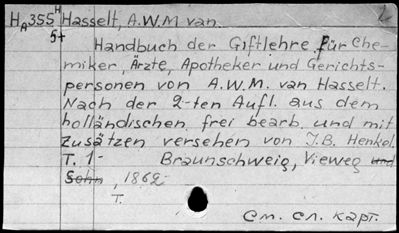 HA355 H Hasselt, A.W.M van.
5+
Handbuch der Giftlehre für Che-
miker, Ärzte, Apotheker und Gerichts-
personen von A.W.M. van Hasselt.
Nach der 2-ten Aufl. aus dem
holländischen frei bearb. und mit
Zusätzen versehen von J.B. Henkel.
T. 1- Braunschweig, Vieweg und
Sohn, 1862-
T.
См. сл. карт.